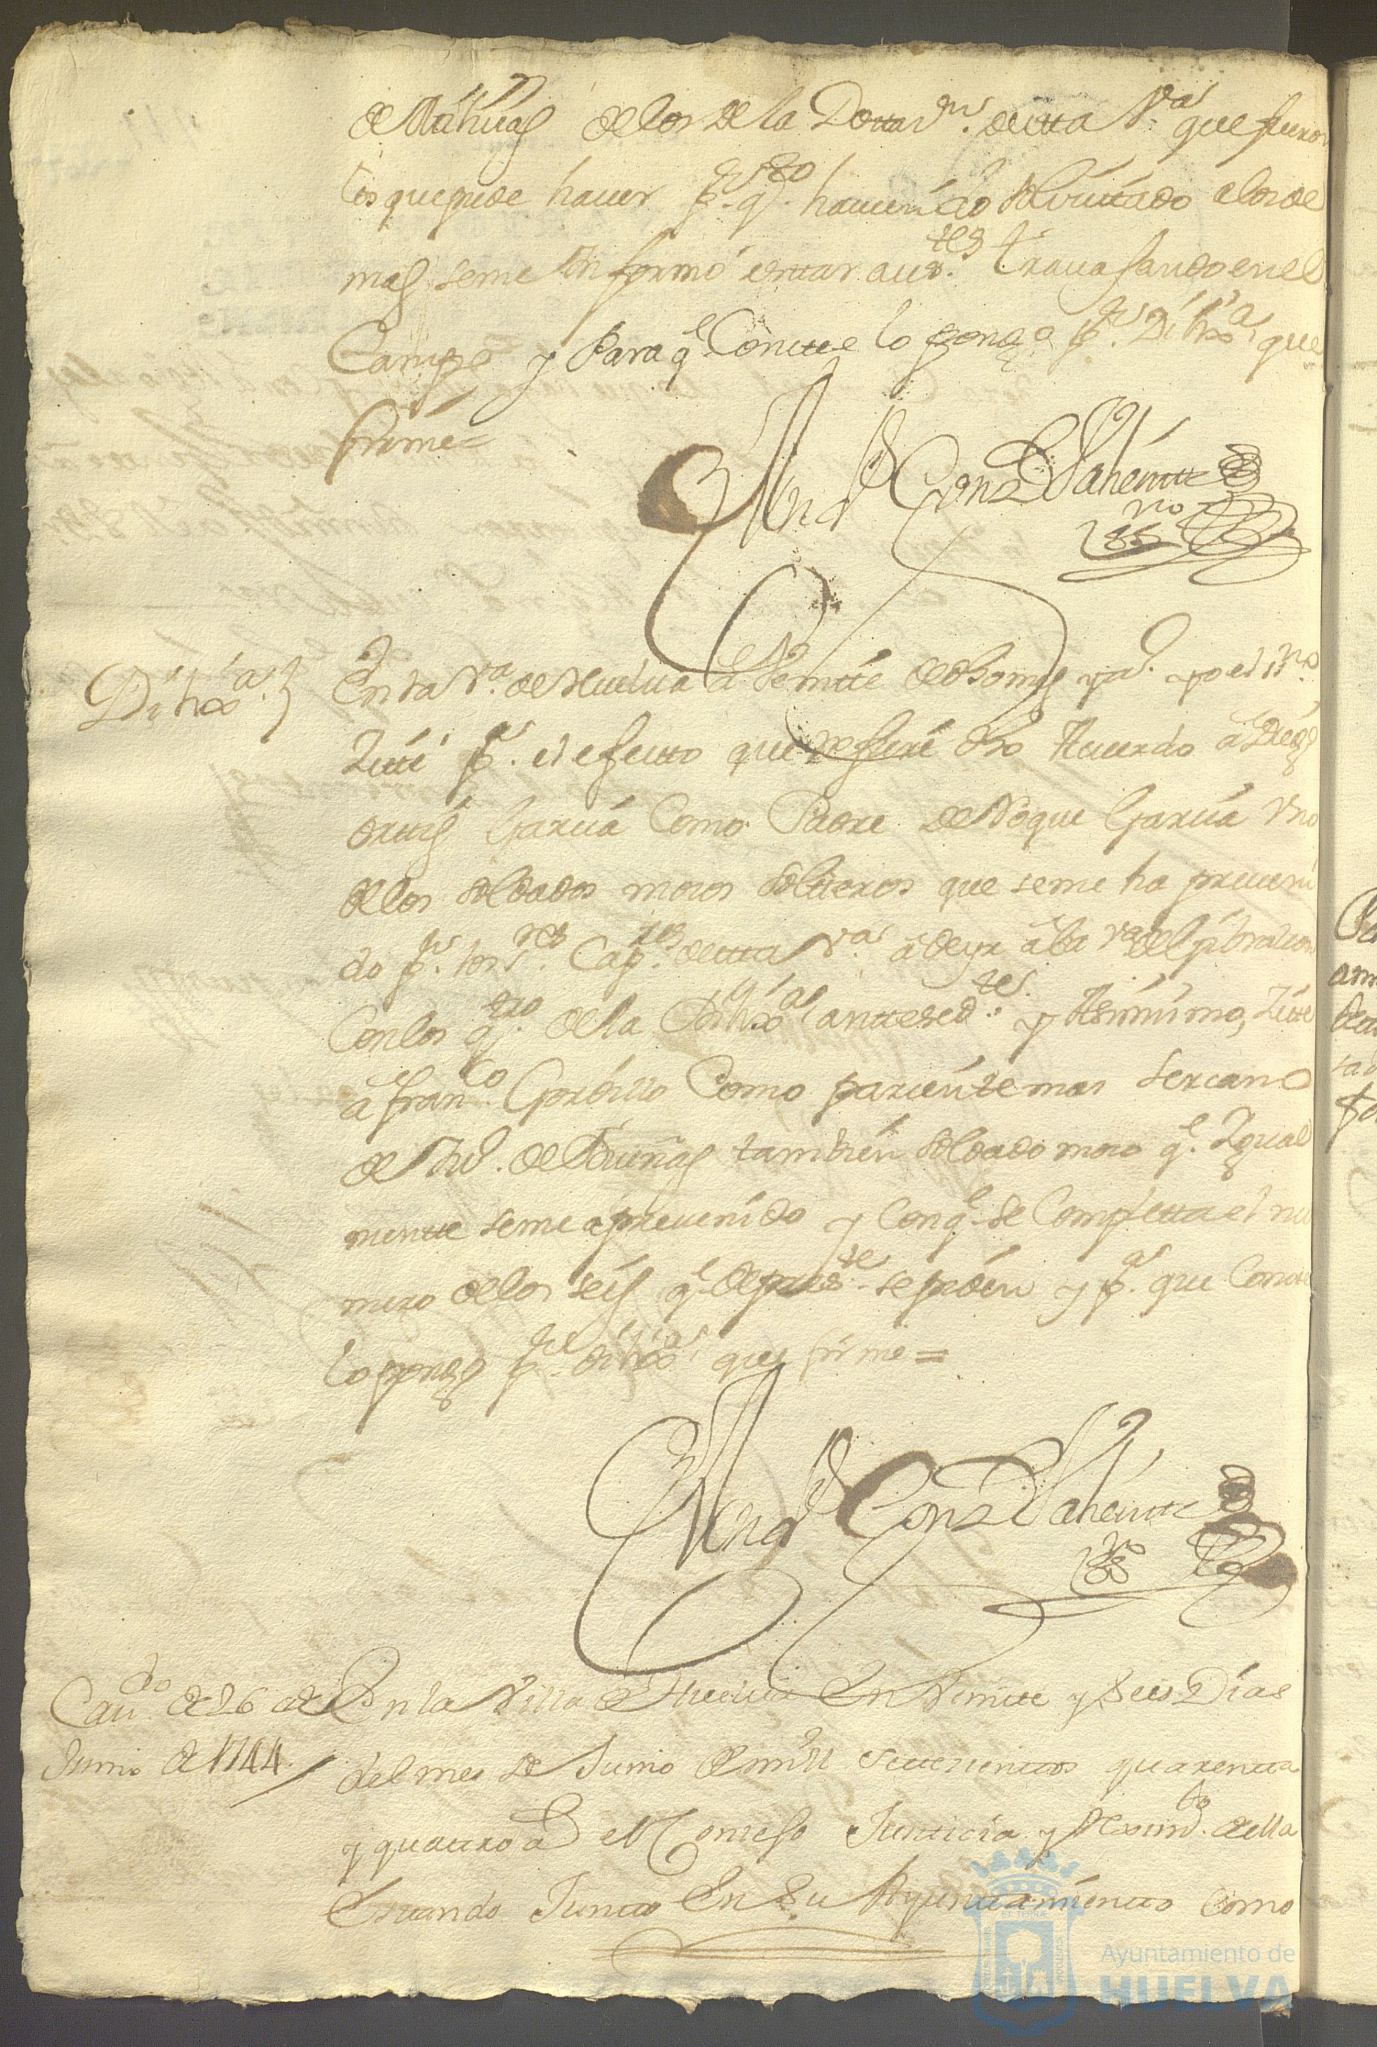 de Miliçias de los de la Dotta.on de esta V.a que fueron
los que pude haver p.r q.to haviendo solicitado a los de
mas se me Informó estar aus.tes travajando en el
Campo y Para q.e Conste lo pongo p.r Dilix.a que
firmé=
And.s Gonz Vahermte
SSno
Dilix.a }
En la V.a de Huelva a Veinte de dho mes y a.o yo el ss.no
Zité p.a el efecto que refiere dho Acuerdo a Diego
García Como Padre de Roque García Uno
de los soldados mosos solteros que se me ha preveni
do p.r los s.res Cap.res de esta V.a
Con los q.to de la Dilix.a antteced.te y Asimismo, Zite
a fran.co Gordillo Como pariente mas sercano
de también soldado moso q.e Igual
mente se me a prevenido y Con q.e se Completta el nu
mero de los seis q.e de pres.te se piden y p.a que Conste
lo pongo p.r dilix.a que firme=
And.s Gonz Vahermte
SSno
Cav.do de 26 de
Junio de 1744.
En la Villa de Huelva En Veinte y Seis Días
del mes de Junio de mill setesientos quarenta
y quattro a.s el Consejo Justicia y Reximi.to della
Estando Junto En Su Ayuntamiento Como
Ayuntamiento de
HUELVA